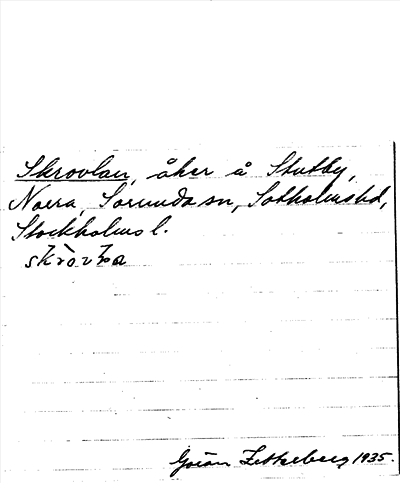 Skrovlan, åker å Stutby,
Norra, Sorunda sn, Sotholms hd,
Stockholms l.
Göran Zetterberg 1935.